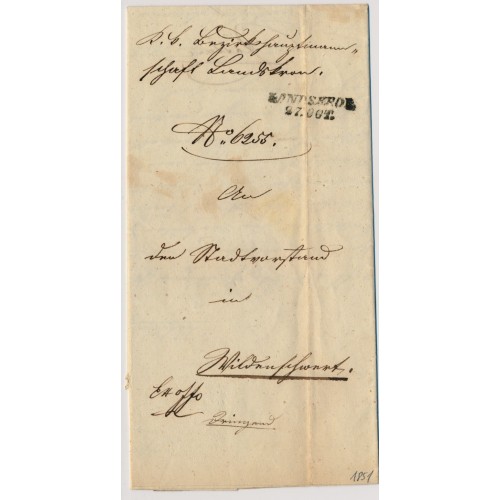 K. k. Bezirkshauptmann-
schaft Landskron.
LANDSKRON
27. OCT.
No. 6255.
An
den Stadtvorstand
in
Wildenschwert.
Ex offo
Dringend
1851